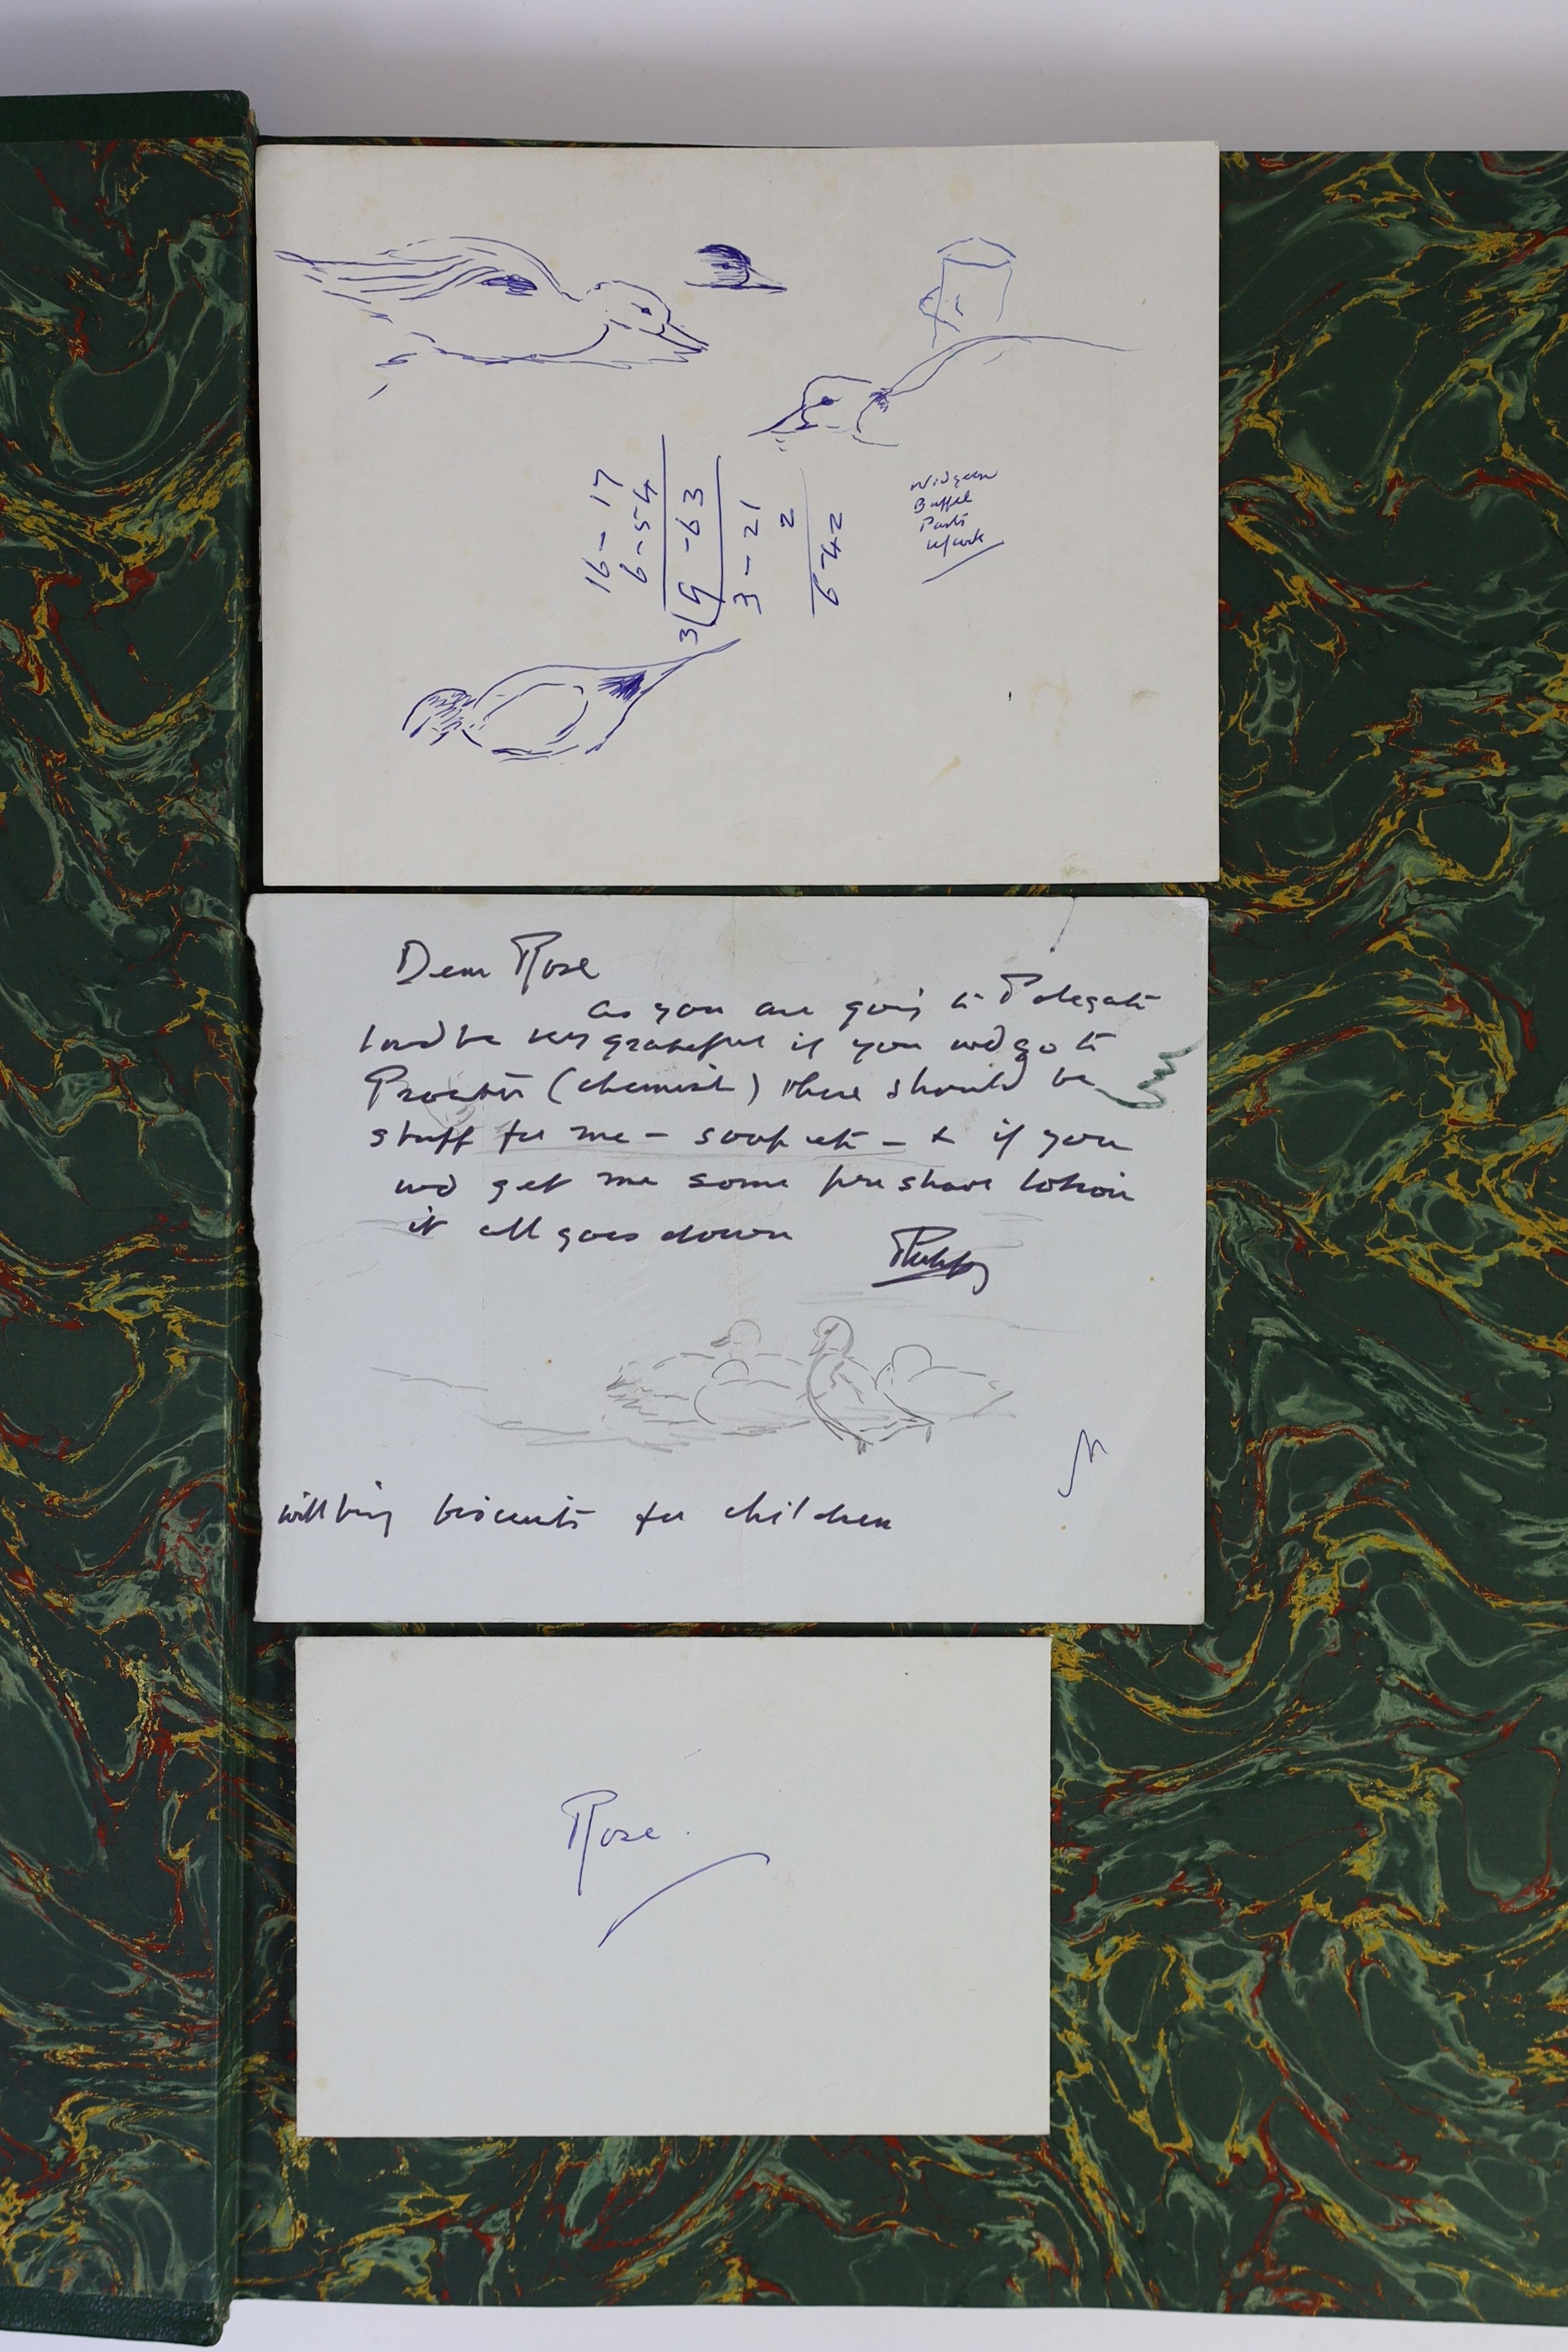 16 - 17
6 - 54
3 9 - 63
3 - 21
2
6 - 42
Widgeon
Dear Rose
as you are going to Polegate
I would be very grateful if you wd go to
(chemist) there should be
stuff for me - soap etc - & if you
wd get me some pre shave lotion
it all goes down
Philip
will bring biscuits for children
Rose.